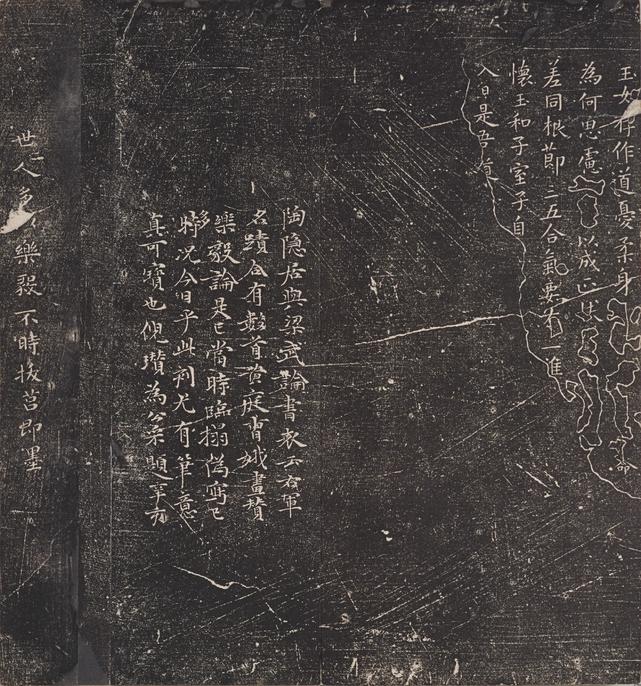 王如存作道憂柔身
為何思慮以成
差同根節三五合氣要有一進
懷玉和子室子自
入日是吾道
命
陶隱居與梁武論書教云右軍
名蹟合有數首黃庭曹娥畫贊
樂毅論是已當時臨搨偽寫已
夥况今日乎此刻尤有筆意
真可寶也倪瓚為公案題
世人多樂毅不時拔莒即墨